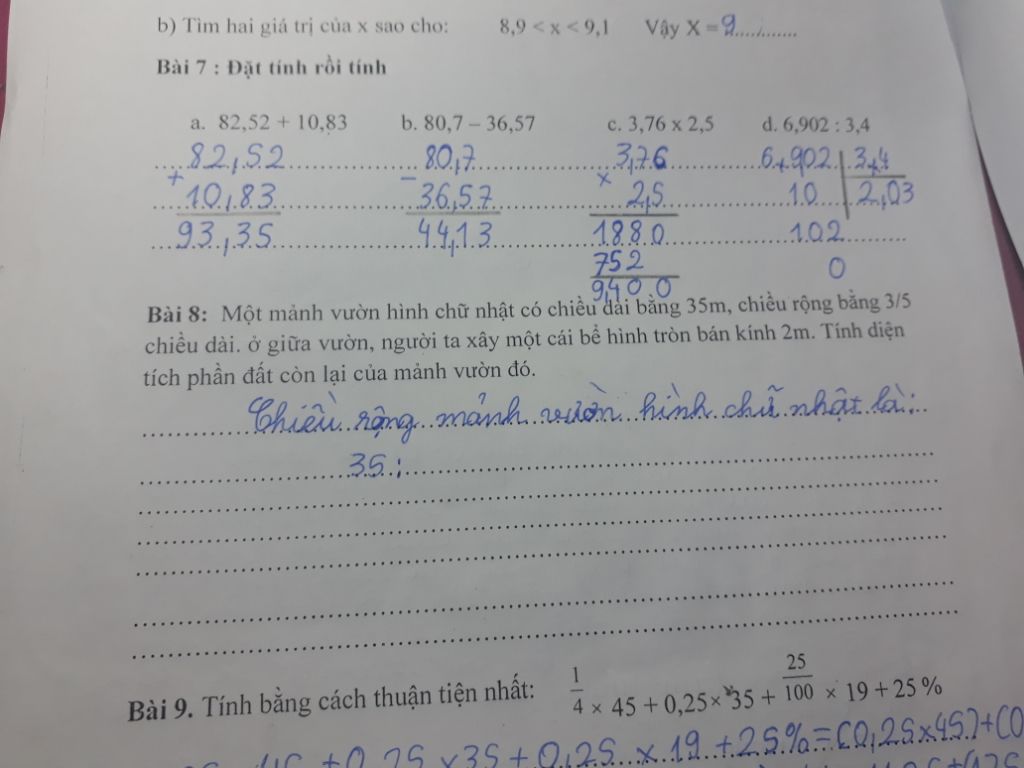 b) Tìm hai giá trị của x sao cho: 8,9 < x < 9,1 Vậy X = 9.............
Bài 7 : Đặt tính rồi tính
a. 82,52 + 10,83 b. 80,7 – 36,57 c. 3,76 x 2,5 d. 6,902 : 3,4
82,52 80,7 3,76 6,902 3,4
+ 10,83 − 36,57 × 2,5 10 2,03
93,35 44,13 1880 102
752 0
9400
Bài 8: Một mảnh vườn hình chữ nhật có chiều dài bằng 35m, chiều rộng bằng 3/5
chiều dài. ở giữa vườn, người ta xây một cái bể hình tròn bán kính 2m. Tính diện
tích phần đất còn lại của mảnh vườn đó.
Chiều rộng mảnh vườn hình chữ nhật là:
35 :
Bài 9. Tính bằng cách thuận tiện nhất: 1/4 × 45 + 0,25 × 35 + 25/100 × 19 + 25 %
45 + 0,25 × 35 + 0,25 × 19 + 25% = (0,25 × 45) + (0